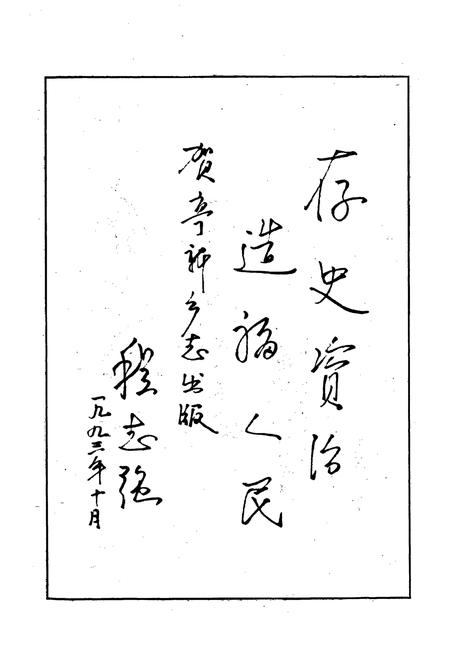 存史资治
造福人民
贺亭乡志出版
程志强
一九九三年十月